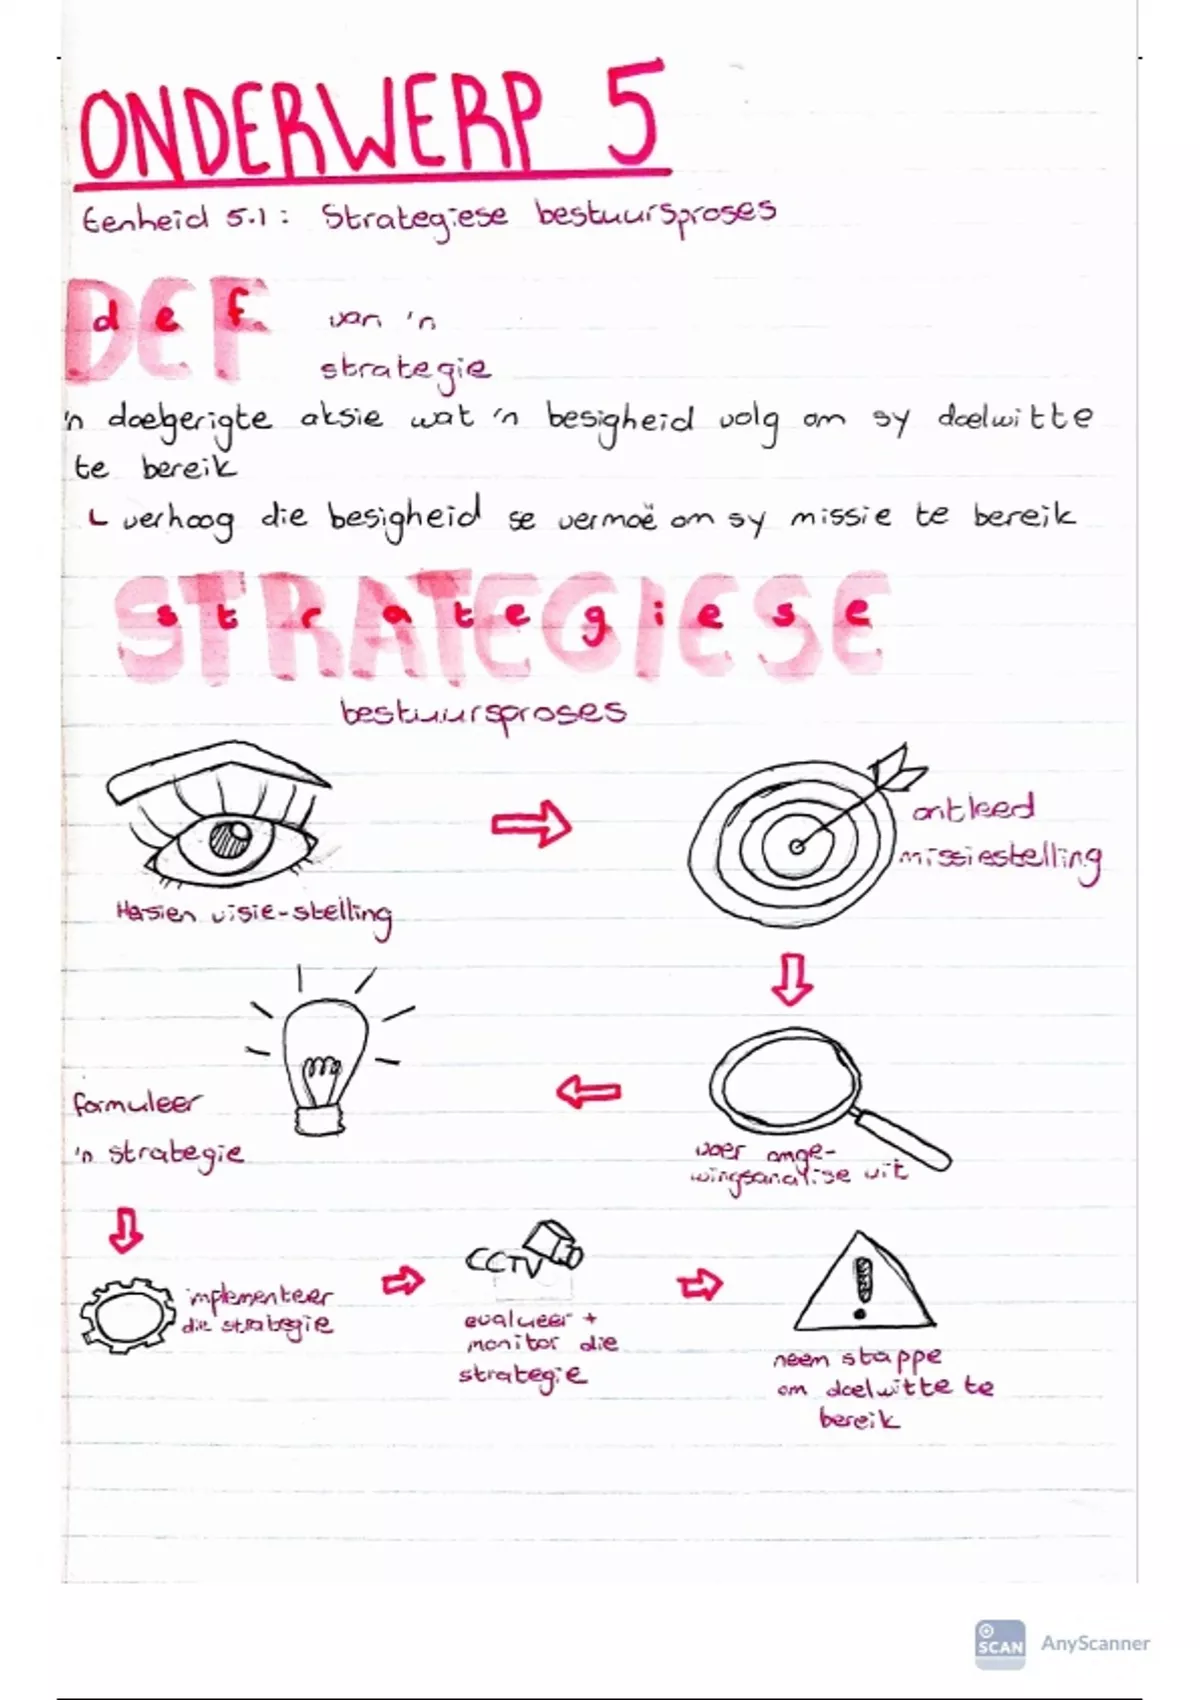 ONDERWERP 5
Eenheid 5.1: Strategiese bestuursproses
DEF
def
van 'n
strategie
'n doelgerigte aksie wat 'n besigheid volg om sy doelwitte
te bereik
↳ verhoog die besigheid se vermoë om sy missie te bereik
STRATEGIESE
strategiese
bestuursproses
ontleed
missiestelling
Hersien visie-stelling
formuleer
'n strategie
voer omge-
wingsanalise uit
CCTV
implementeer
die strategie
evalueer +
monitor die
strategie
neem stappe
om doelwitte te
bereik
SCAN
AnyScanner